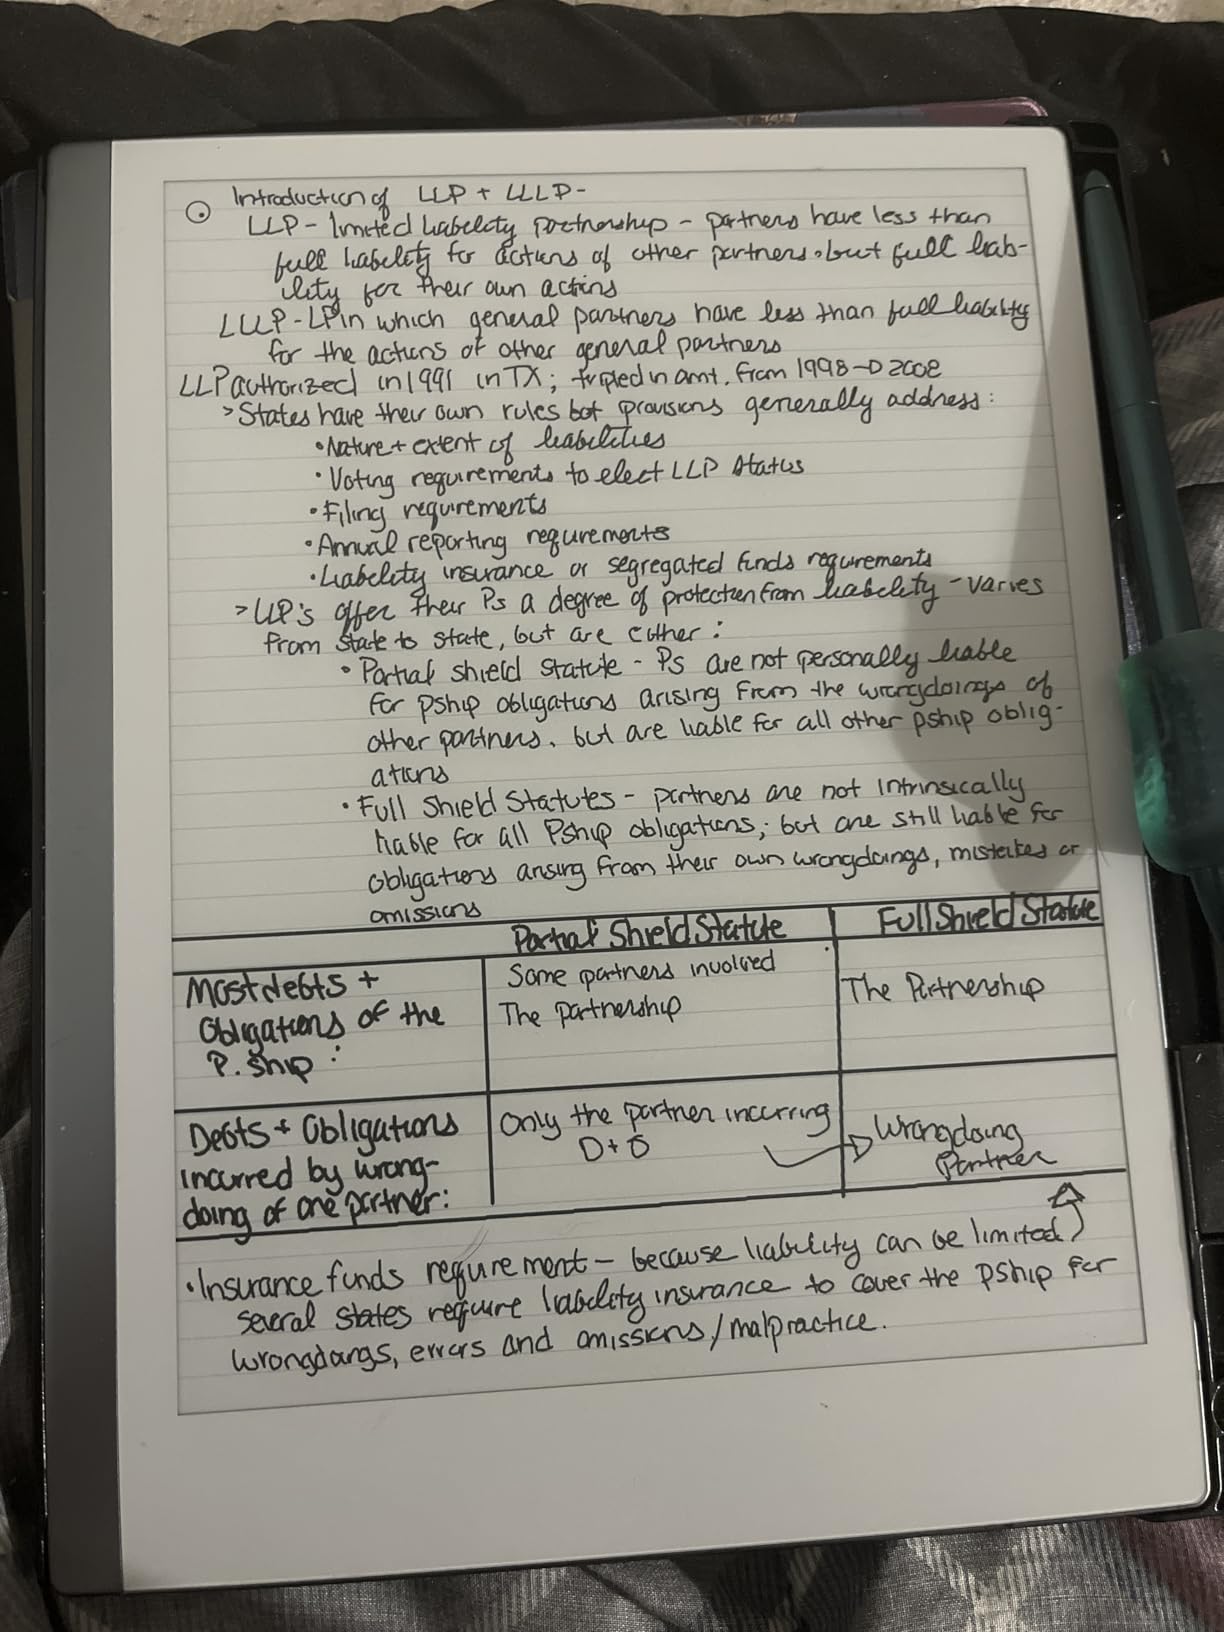 Introduction of LLP + LLLP-
LLP - limited liability partnership - partners have less than
full liability for actions of other partners, but full liab-
ility for their own actions
LLLP - LP in which general partners have less than full liability
for the actions of other general partners
LLP authorized in 1991 in TX; tripled in amt. from 1998-2008
> States have their own rules but provisions generally address:
• Nature + extent of liabilities
• Voting requirements to elect LLP status
• Filing requirements
• Annual reporting requirements
• Liability insurance or segregated funds requirements
> LLP's offer their Ps a degree of protection from liability - varies
from state to state, but are either:
• Partial shield statute - Ps are not personally liable
for pship obligations arising from the wrongdoings of
other partners, but are liable for all other pship oblig-
ations
• Full Shield Statutes - partners are not intrinsically
liable for all Pship obligations; but are still liable for
obligations arising from their own wrongdoings, mistakes or
omissions
Partial Shield Statute Full Shield Statute
Most debts +
Obligations of the
P.ship:
Some partners involved
The Partnership
The Partnership
Debts + Obligations
incurred by wrong-
doing of one partner:
Only the partner incurring
D+O
Wrongdoing
Partner
• Insurance funds requirement - because liability can be limited,
several states require liability insurance to cover the pship for
wrongdoings, errors and omissions/malpractice.